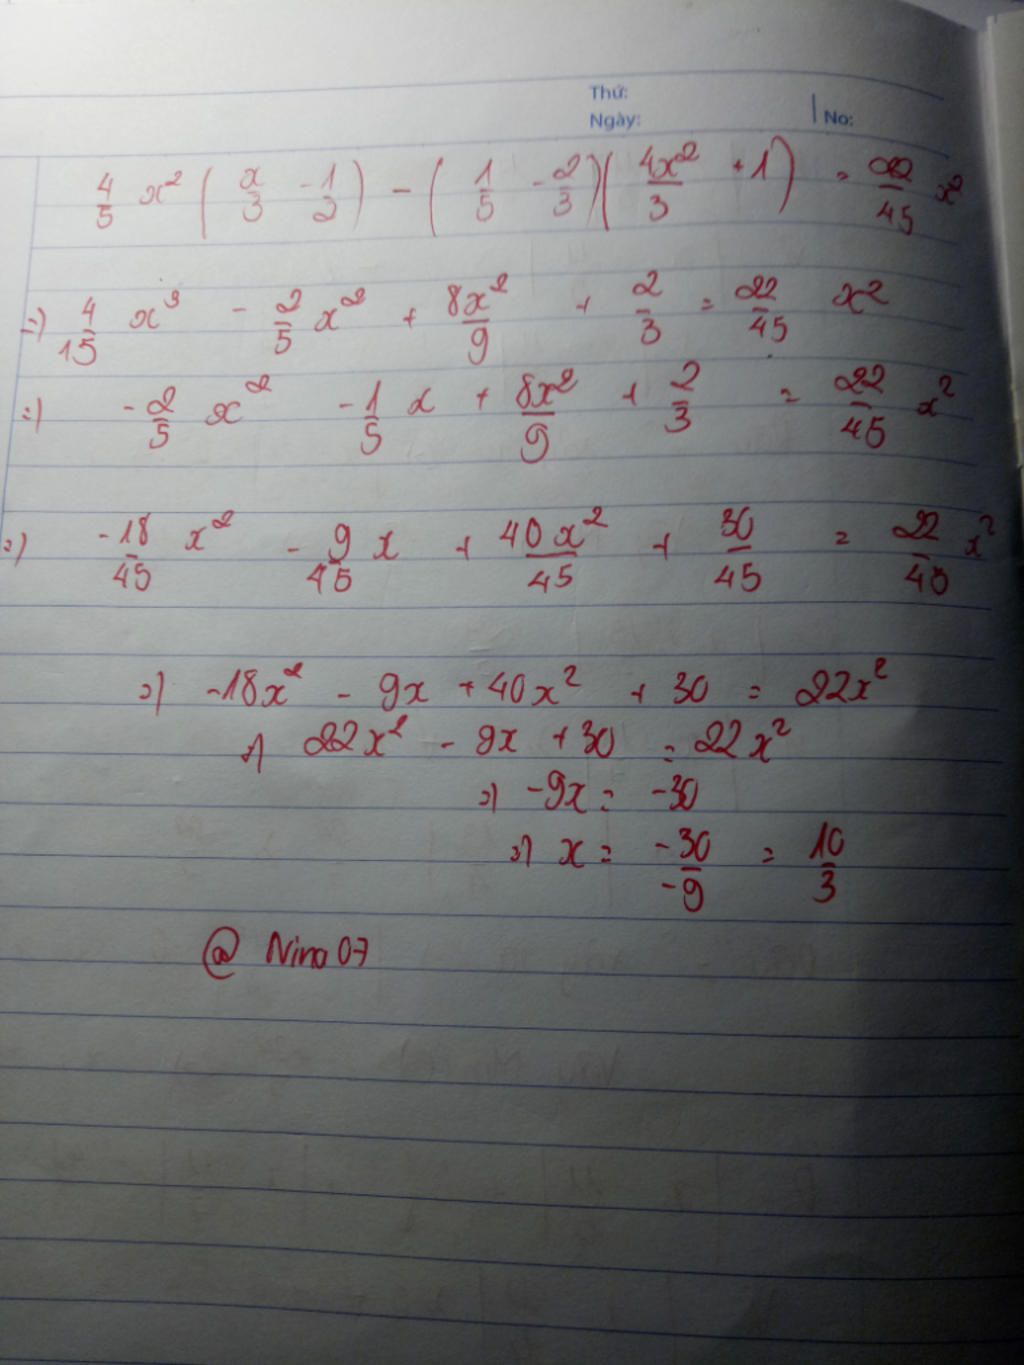 Thứ:
Ngày:
No:
4/5 x² ( x/3 - 1/2 ) - ( 1/5 - 2/3 )( 4x²/3 + 1 ) = 22/45 x²
=) 4/15 x³ - 2/5 x² + 8x²/9 + 2/3 = 22/45 x²
=) -2/5 x² - 1/5 x + 8x²/9 + 2/3 = 22/45 x²
=) -18/45 x² - 9/45 x + 40x²/45 + 30/45 = 22/45 x²
=) -18x² - 9x + 40x² + 30 = 22x²
=) 22x² - 9x + 30 = 22x²
=) -9x = -30
=) x = -30/-9 = 10/3
@ Nino07